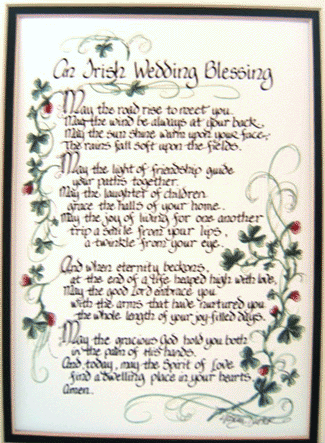 An Irish Wedding Blessing
May the road rise to meet you.
May the wind be always at your back,
May the sun shine warm upon your face,
The rains fall soft upon the fields.
May the light of friendship guide
your paths together.
May the laughter of children
grace the halls of your home.
May the joy of living for one another
trip a smile from your lips,
a twinkle from your eye.
And when eternity beckons,
at the end of a life heaped high with love,
May the good Lord embrace you
with the arms that have nurtured you
the whole length of your joy-filled days.
May the gracious God hold you both
in the palm of His hands.
And, today, may the Spirit of Love
find a dwelling place in your hearts.
Amen.